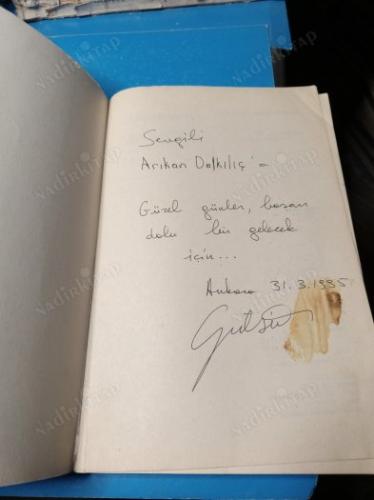 Sevgili
Arıkan Dalkılıç'a
Güzel günler, başarı
dolu bir gelecek
için...
Ankara 31.3.1985
NadirKitap